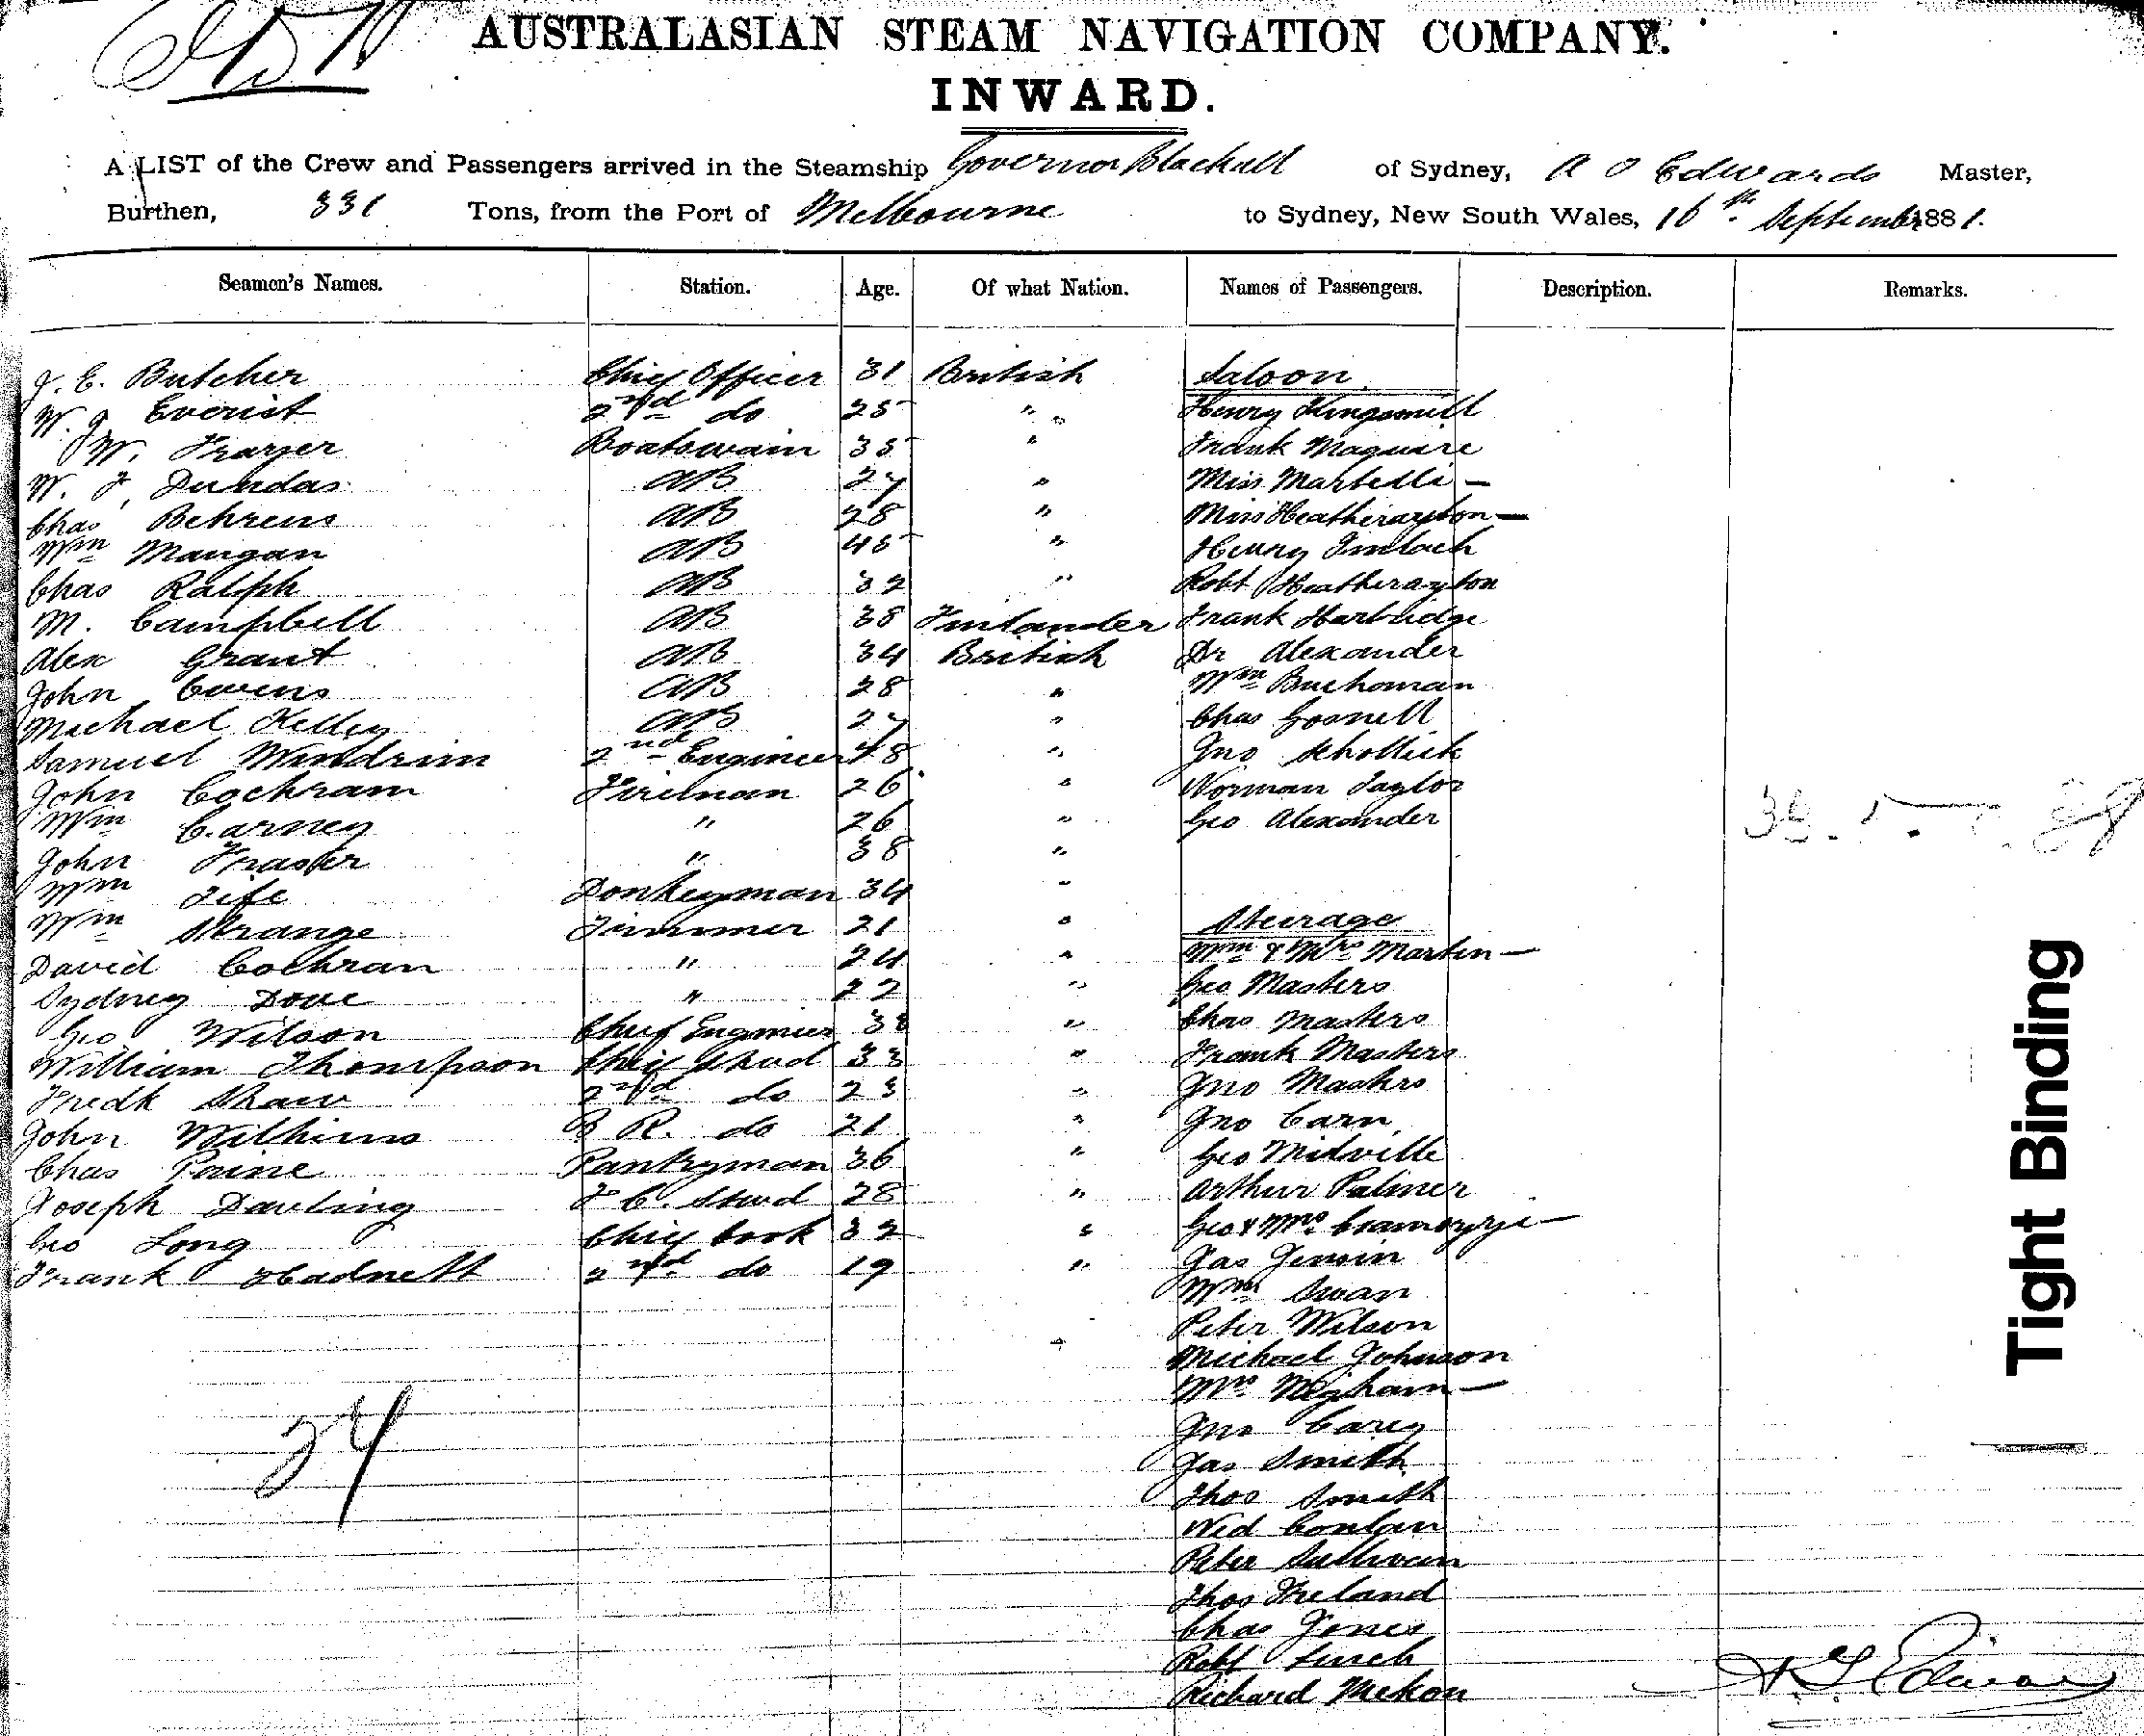 AUSTRALASIAN STEAM NAVIGATION COMPANY.
INWARD.
A LIST of the Crew and Passengers arrived in the Steamship Governor Blackall of Sydney, A O Edwards Master,
Burthen, 331 Tons, from the Port of Melbourne to Sydney, New South Wales, 16th September 1881.
Seamen's Names. Station. Age. Of what Nation. Names of Passengers. Description. Remarks.
J. E. Butcher Chief Officer 31 British Saloon
W. J Everist 2nd do 25 " Henry Kingsmill
W. Frazer Boatswain 35 " Frank Maguire
W. J. Dundas AB 27 " Miss Martelli —
Chas Behrens AB 28 " Miss —
Wm Mangan AB 45 " Henry Imlach
Chas Ralph AB 32 " Robt
M. Campbell AB 38 Finlander Frank Harbidge
Alex Grant AB 34 British Dr Alexander
John Owens AB 28 " Wm Buchoman
Michael Kelley AB 27 " Chas Gosnell
Samuel Windrim 2nd Engineer 48 " Jno
John Cochram Fireman 26 " Norman Taylor
Wm Carney " 26 " Geo Alexander
John Fraser " 38 "
Wm Fife Donkeyman 34 "
Wm Strange Trimmer 21 " Steerage
David Cochran " 24 " Wm & Mrs Martin —
Sydney Dove " 22 " Geo Masters
Geo Wilson Chief Engineer 38 " Chas Masters
William Thompson Chief Stwd 33 " Frank Masters
Fredk Shaw 2nd do 23 " Jno Masters
John Williams B R. do 21 " Jno Carn
Chas Paine Pantryman 36 " Geo Midville
Joseph Dauling F C. Stwd 28 " Arthur Palmer
Geo Long Chief Cook 32 " Geo & Mrs —
Frank Hadnett 2nd do 19 " Jas
Wm Swan
Peter Wilson
Michael Johnson
Mrs —
Jno Carey
Jas Smith
Thos Smith
Ned Conlan
Peter Sullivan
Thos Ireland
Chas Jones
Robt Lynch
Richard Mekon
27
Tight Binding